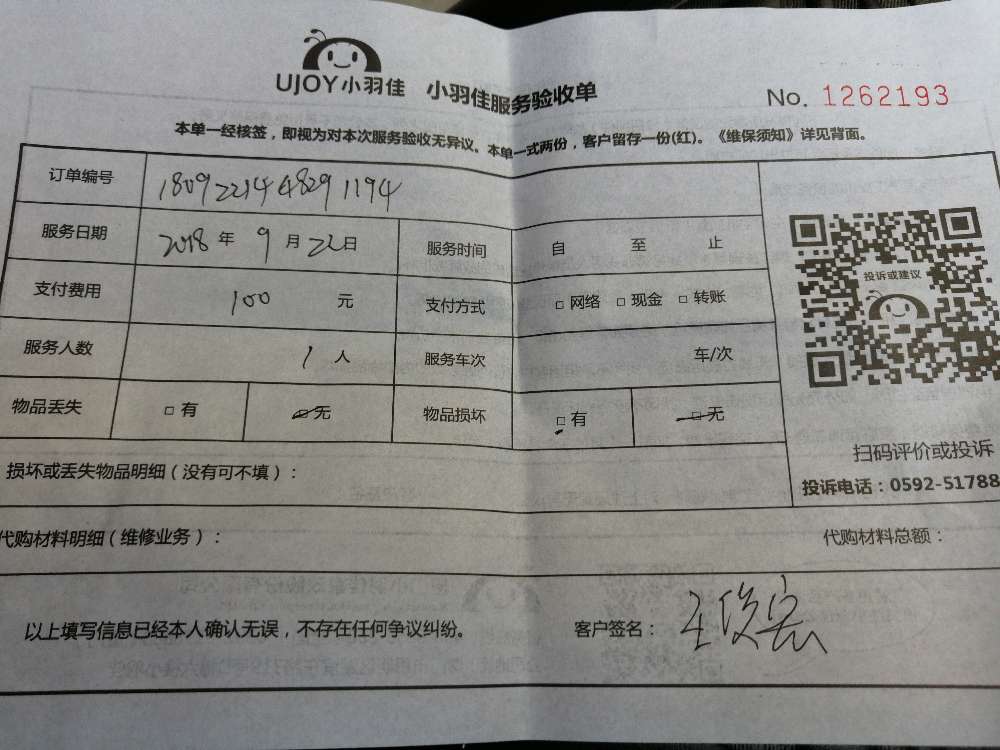 UJOY小羽佳 小羽佳服务验收单 No. 1262193
本单一经核签，即视为对本次服务验收无异议。本单一式两份，客户留存一份(红)。《维保须知》详见背面。
订单编号 180922144829 1194
服务日期 2018 年 9 月 22 日 服务时间 自 至 止
投诉或建议
支付费用 100 元 支付方式 □ 网络 □ 现金 □ 转账
服务人数 1 人 服务车次 车/次
物品丢失 □ 有 □ 无 物品损坏 □ 有 □ 无
扫码评价或投诉
损坏或丢失物品明细（没有可不填）：
投诉电话：0592-51788
代购材料明细（维修业务）： 代购材料总额：
以上填写信息已经本人确认无误，不存在任何争议纠纷。 客户签名：